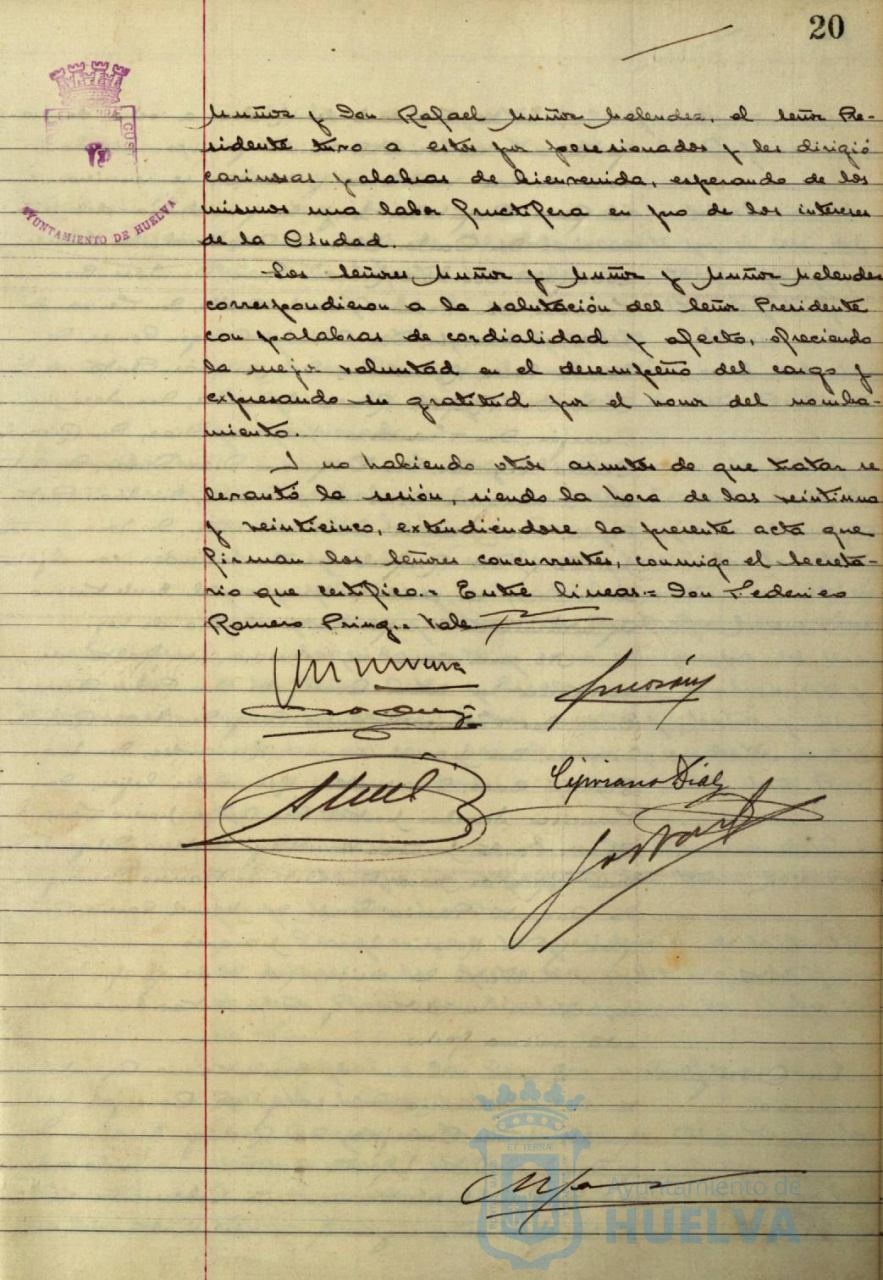 20
AYUNTAMIENTO DE HUELVA
Muñoz y Don Rafael Muñoz Melendez, el señor Pre-
sidente tuvo a estos por posesionados y les dirigió
cariñosas palabras de bienvenida, esperando de los
mismos una labor fructifera en pro de los intereses
de la Ciudad.
Los señores Muñoz y Muñoz y Muñoz Melendez
correspondieron a la salutación del señor Presidente
con palabras de cordialidad y afecto, ofreciendo
la mejor voluntad en el desempeño del cargo y
expresando su gratitud por el honor del nombra-
miento.
Y no habiendo otros asuntos de que tratar se
levantó la sesión, siendo la hora de las veintiuna
y veinticinco, extendiéndose la presente acta que
firman los señores concurrentes, conmigo el Secreta-
rio que certifico.= Entre lineas.= Don Federico
Romero Prinq.= Vale
Cipriano Diaz
Ayuntamiento de
HUELVA